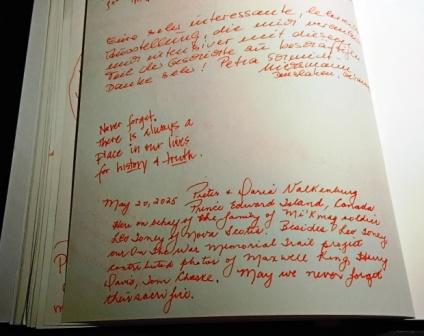 Eine sehr interessante, lehr
Ausstellung, die mich veran
mich intensiver mit diesem
Teil der Geschichte zu beschäftigen
Danke sehr! Petra
Dinslaken,
Never forget.
There is always a
place in our lives
for history & truth.
May 20, 2025 Pieter & Daria Valkenburg
Prince Edward Island, Canada
Here on behalf of the family of Mi'kmaq soldier
Leo Toney of Nova Scotia. Besides Leo Toney
our On The War Memorial Trail project
contributed photos of Maxwell King, Harry
David, Tom Chaske. May we never forget
their sacrifice.